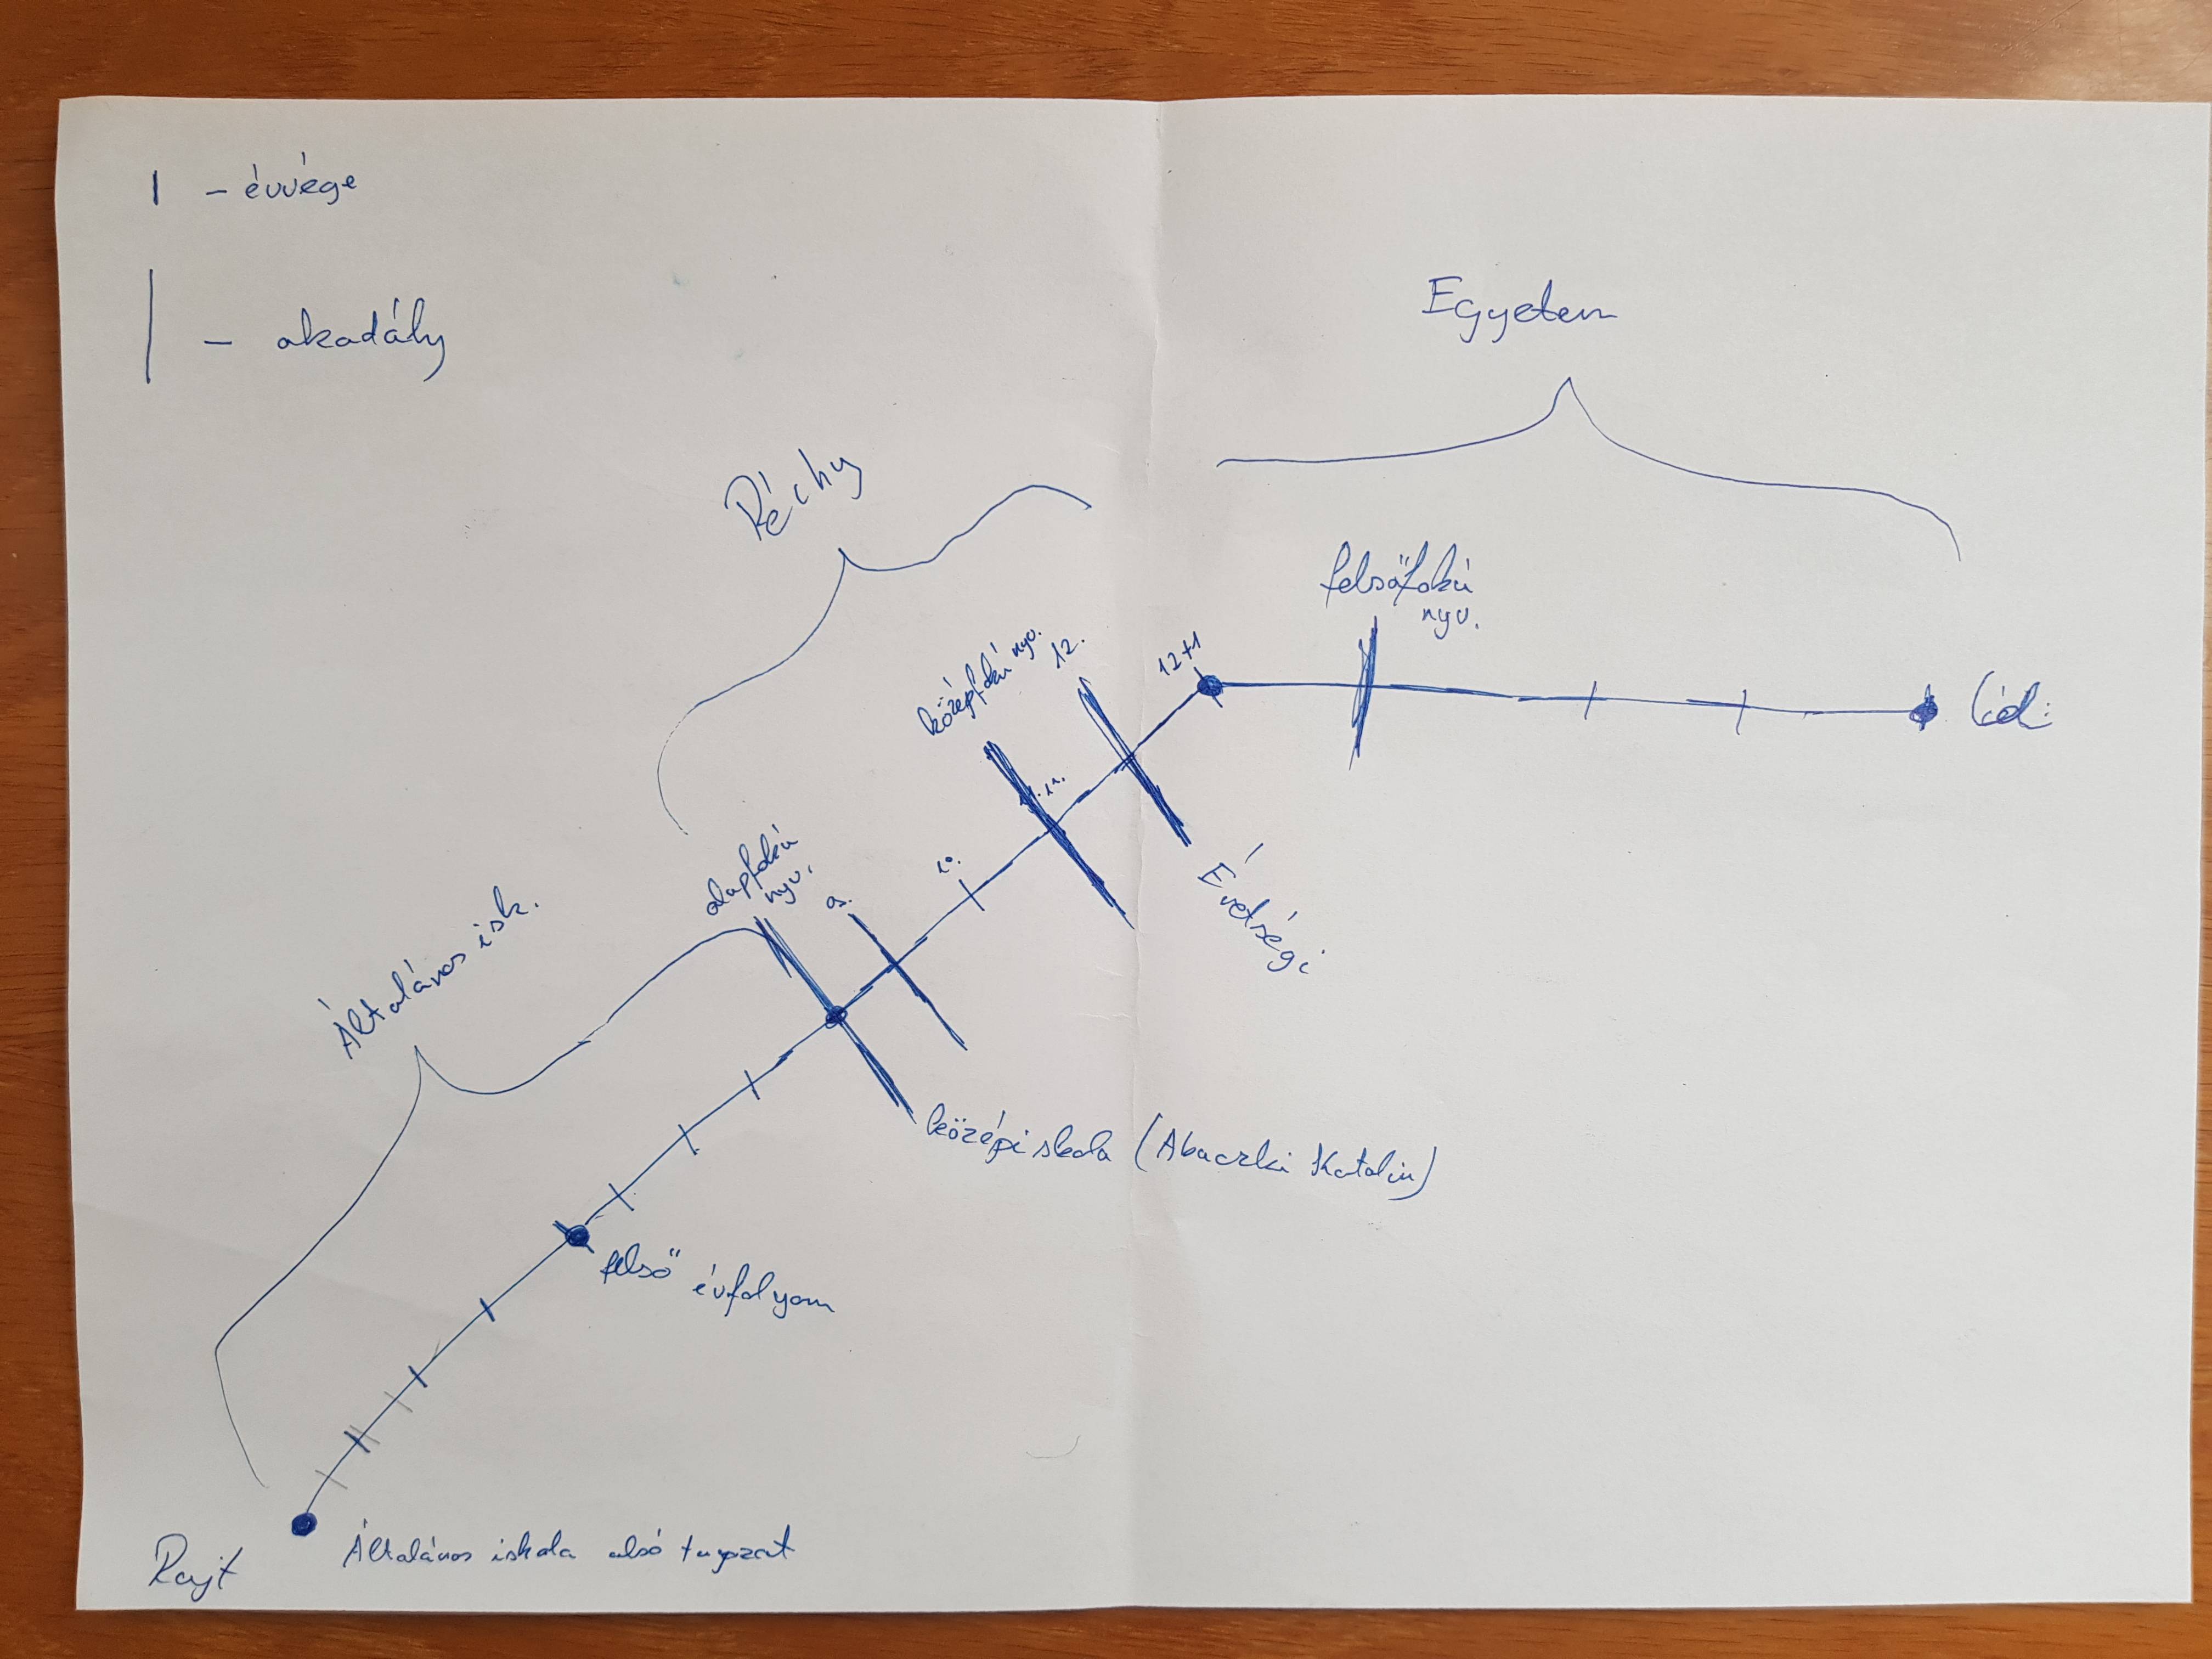 - évvége
- akadály
Egyetem
Péchy
felsőfokú
nyv.
középfokú nyv.
12.
12+1
Cél:
11.
10.
alapfokú
nyv.
9.
Érettségi
Általános isk.
középiskola (Abaczki Katalin)
felső évfolyam
Rajt
Általános iskola alsó tagozat